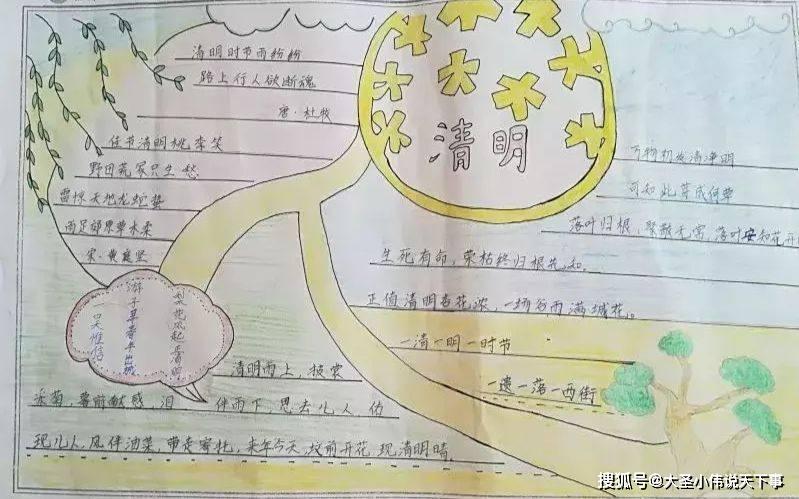 清明
清明时节雨纷纷
路上行人欲断魂
唐·杜牧
佳节清明桃李笑
野田荒冢只生愁
雷惊天地龙蛇蛰
雨足郊原草木柔
宋·黄庭坚
梨花风起正清明
游子寻春半出城
吴惟信
万物初发清净明
可知此草成何草
落叶归根,聚散无常,落叶安知花开
生死有命,荣枯终归根先知。
正值清明杏花浓,一场谷雨满城花。
一清一明一时节
一遠一落一西街
清明雨上,损裳
采菊,墓前献感,泪 伴雨下,思去儿人,仿
现儿人,风伴油菜,带走 来年今天,坟前开花,现清明晴。
搜狐号@大圣小伟说天下事